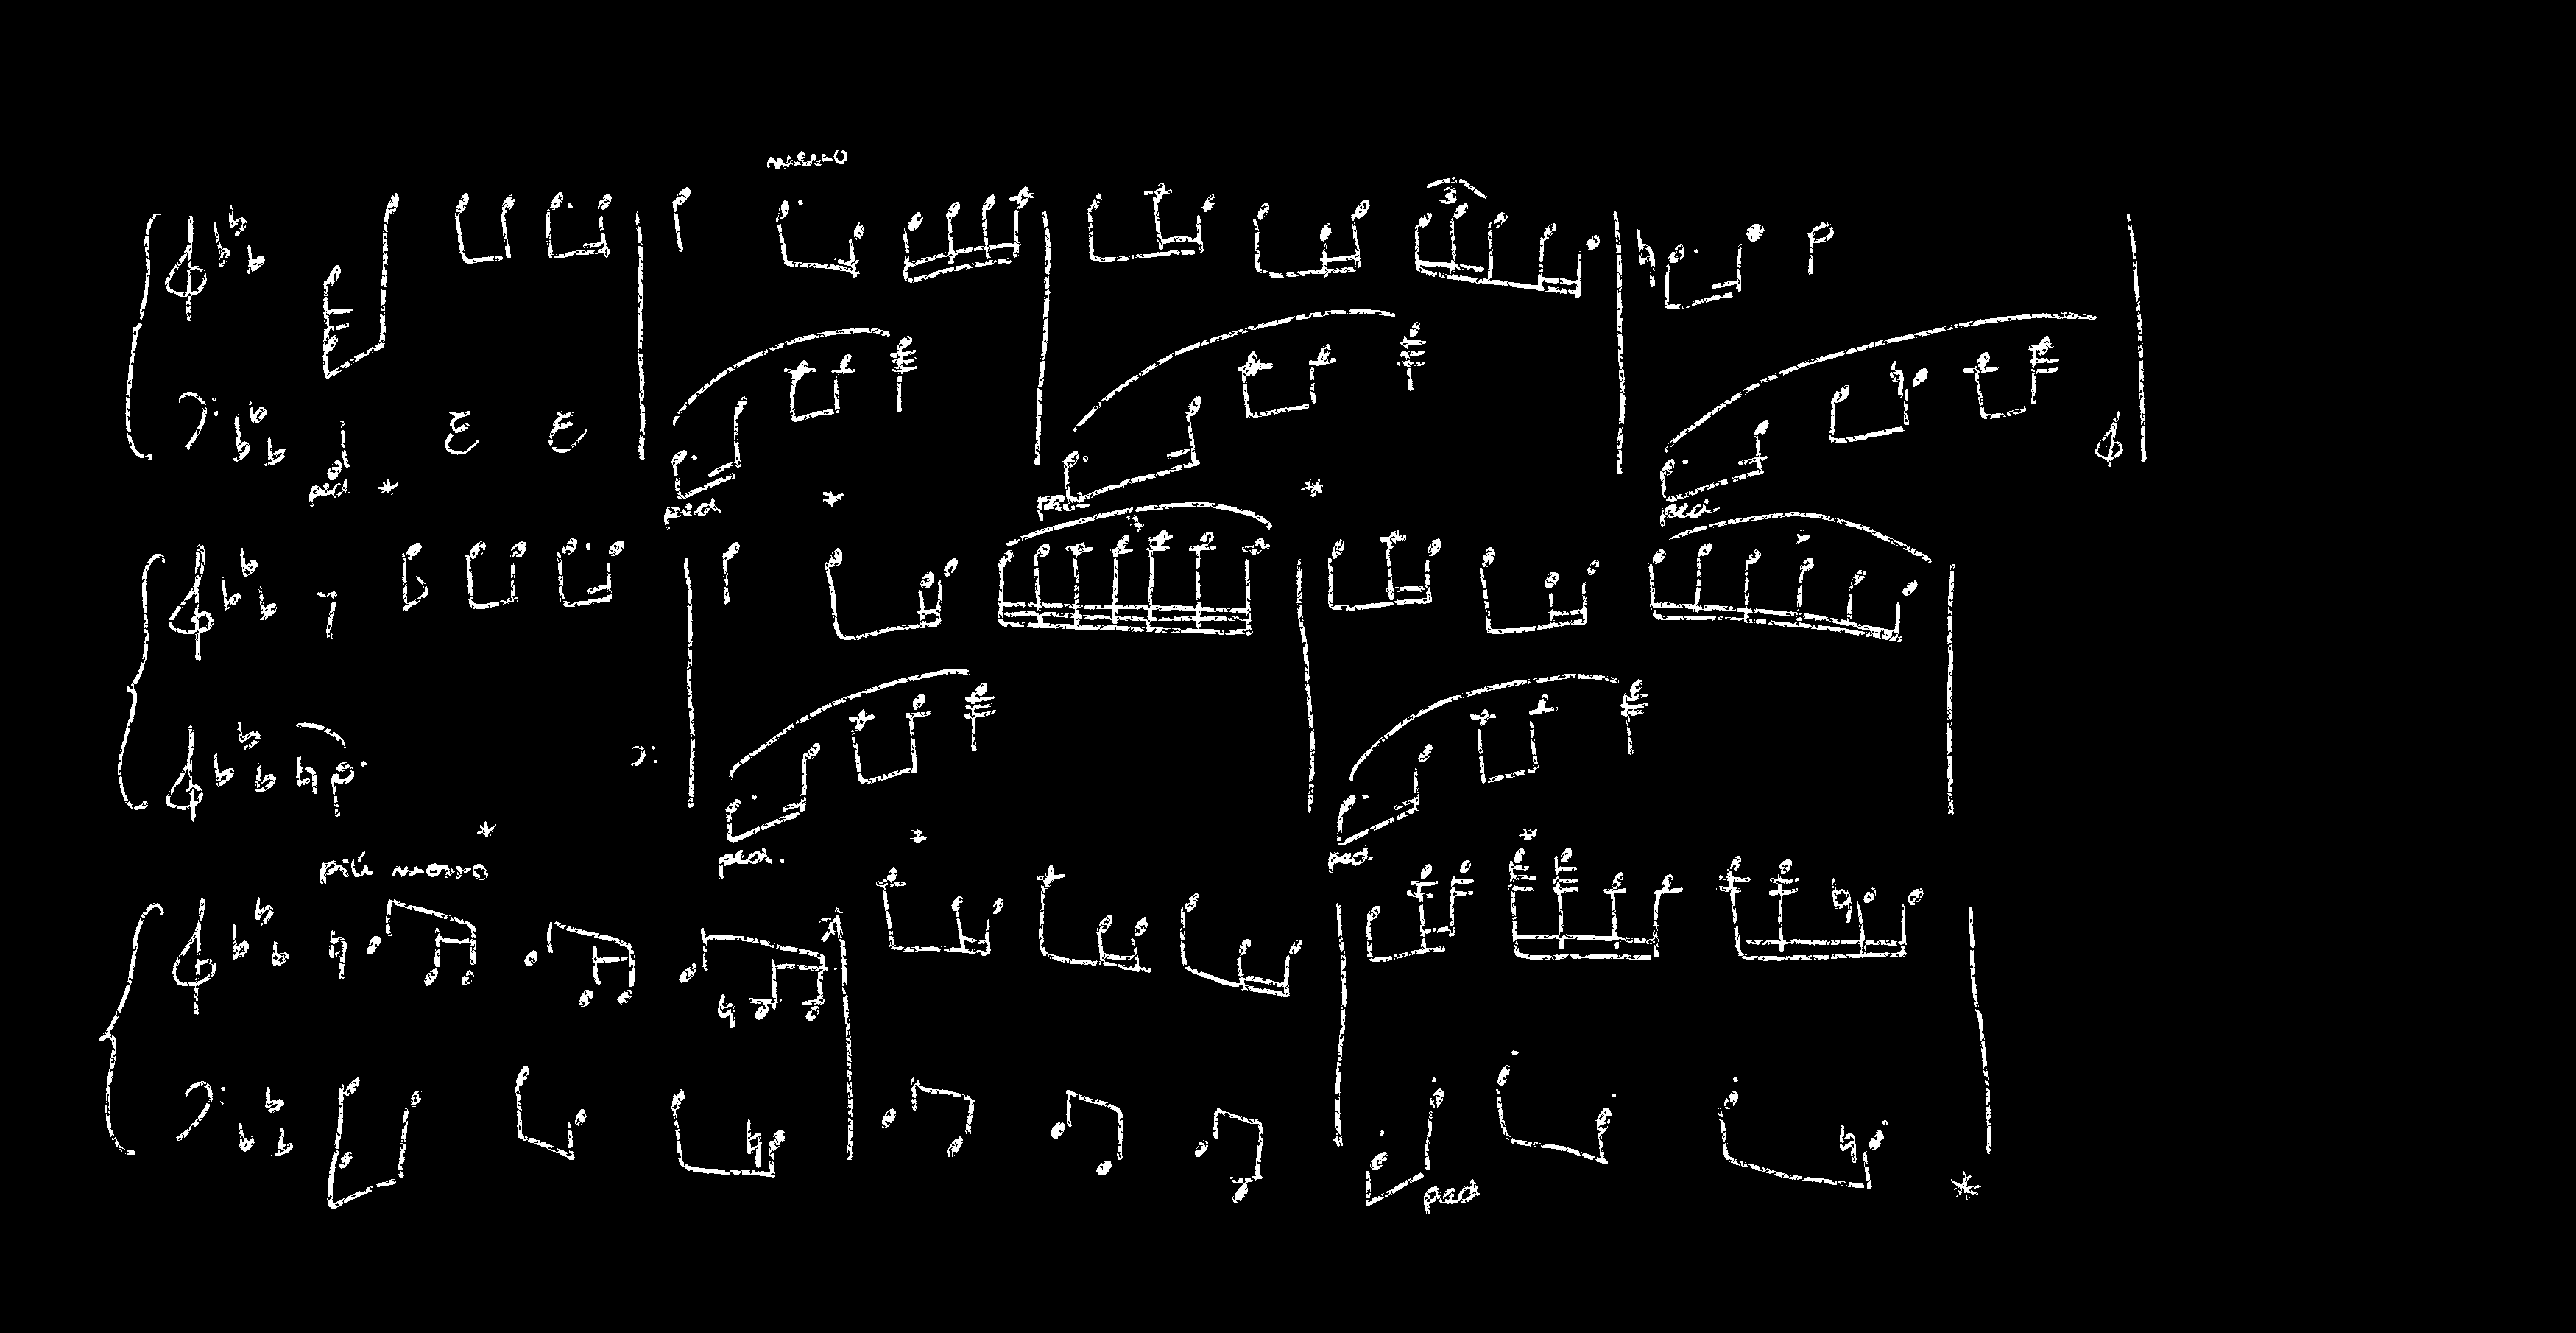 mosso
3
ped * ped * ped * ped
7
* ped. * ped *
più mosso
ped *